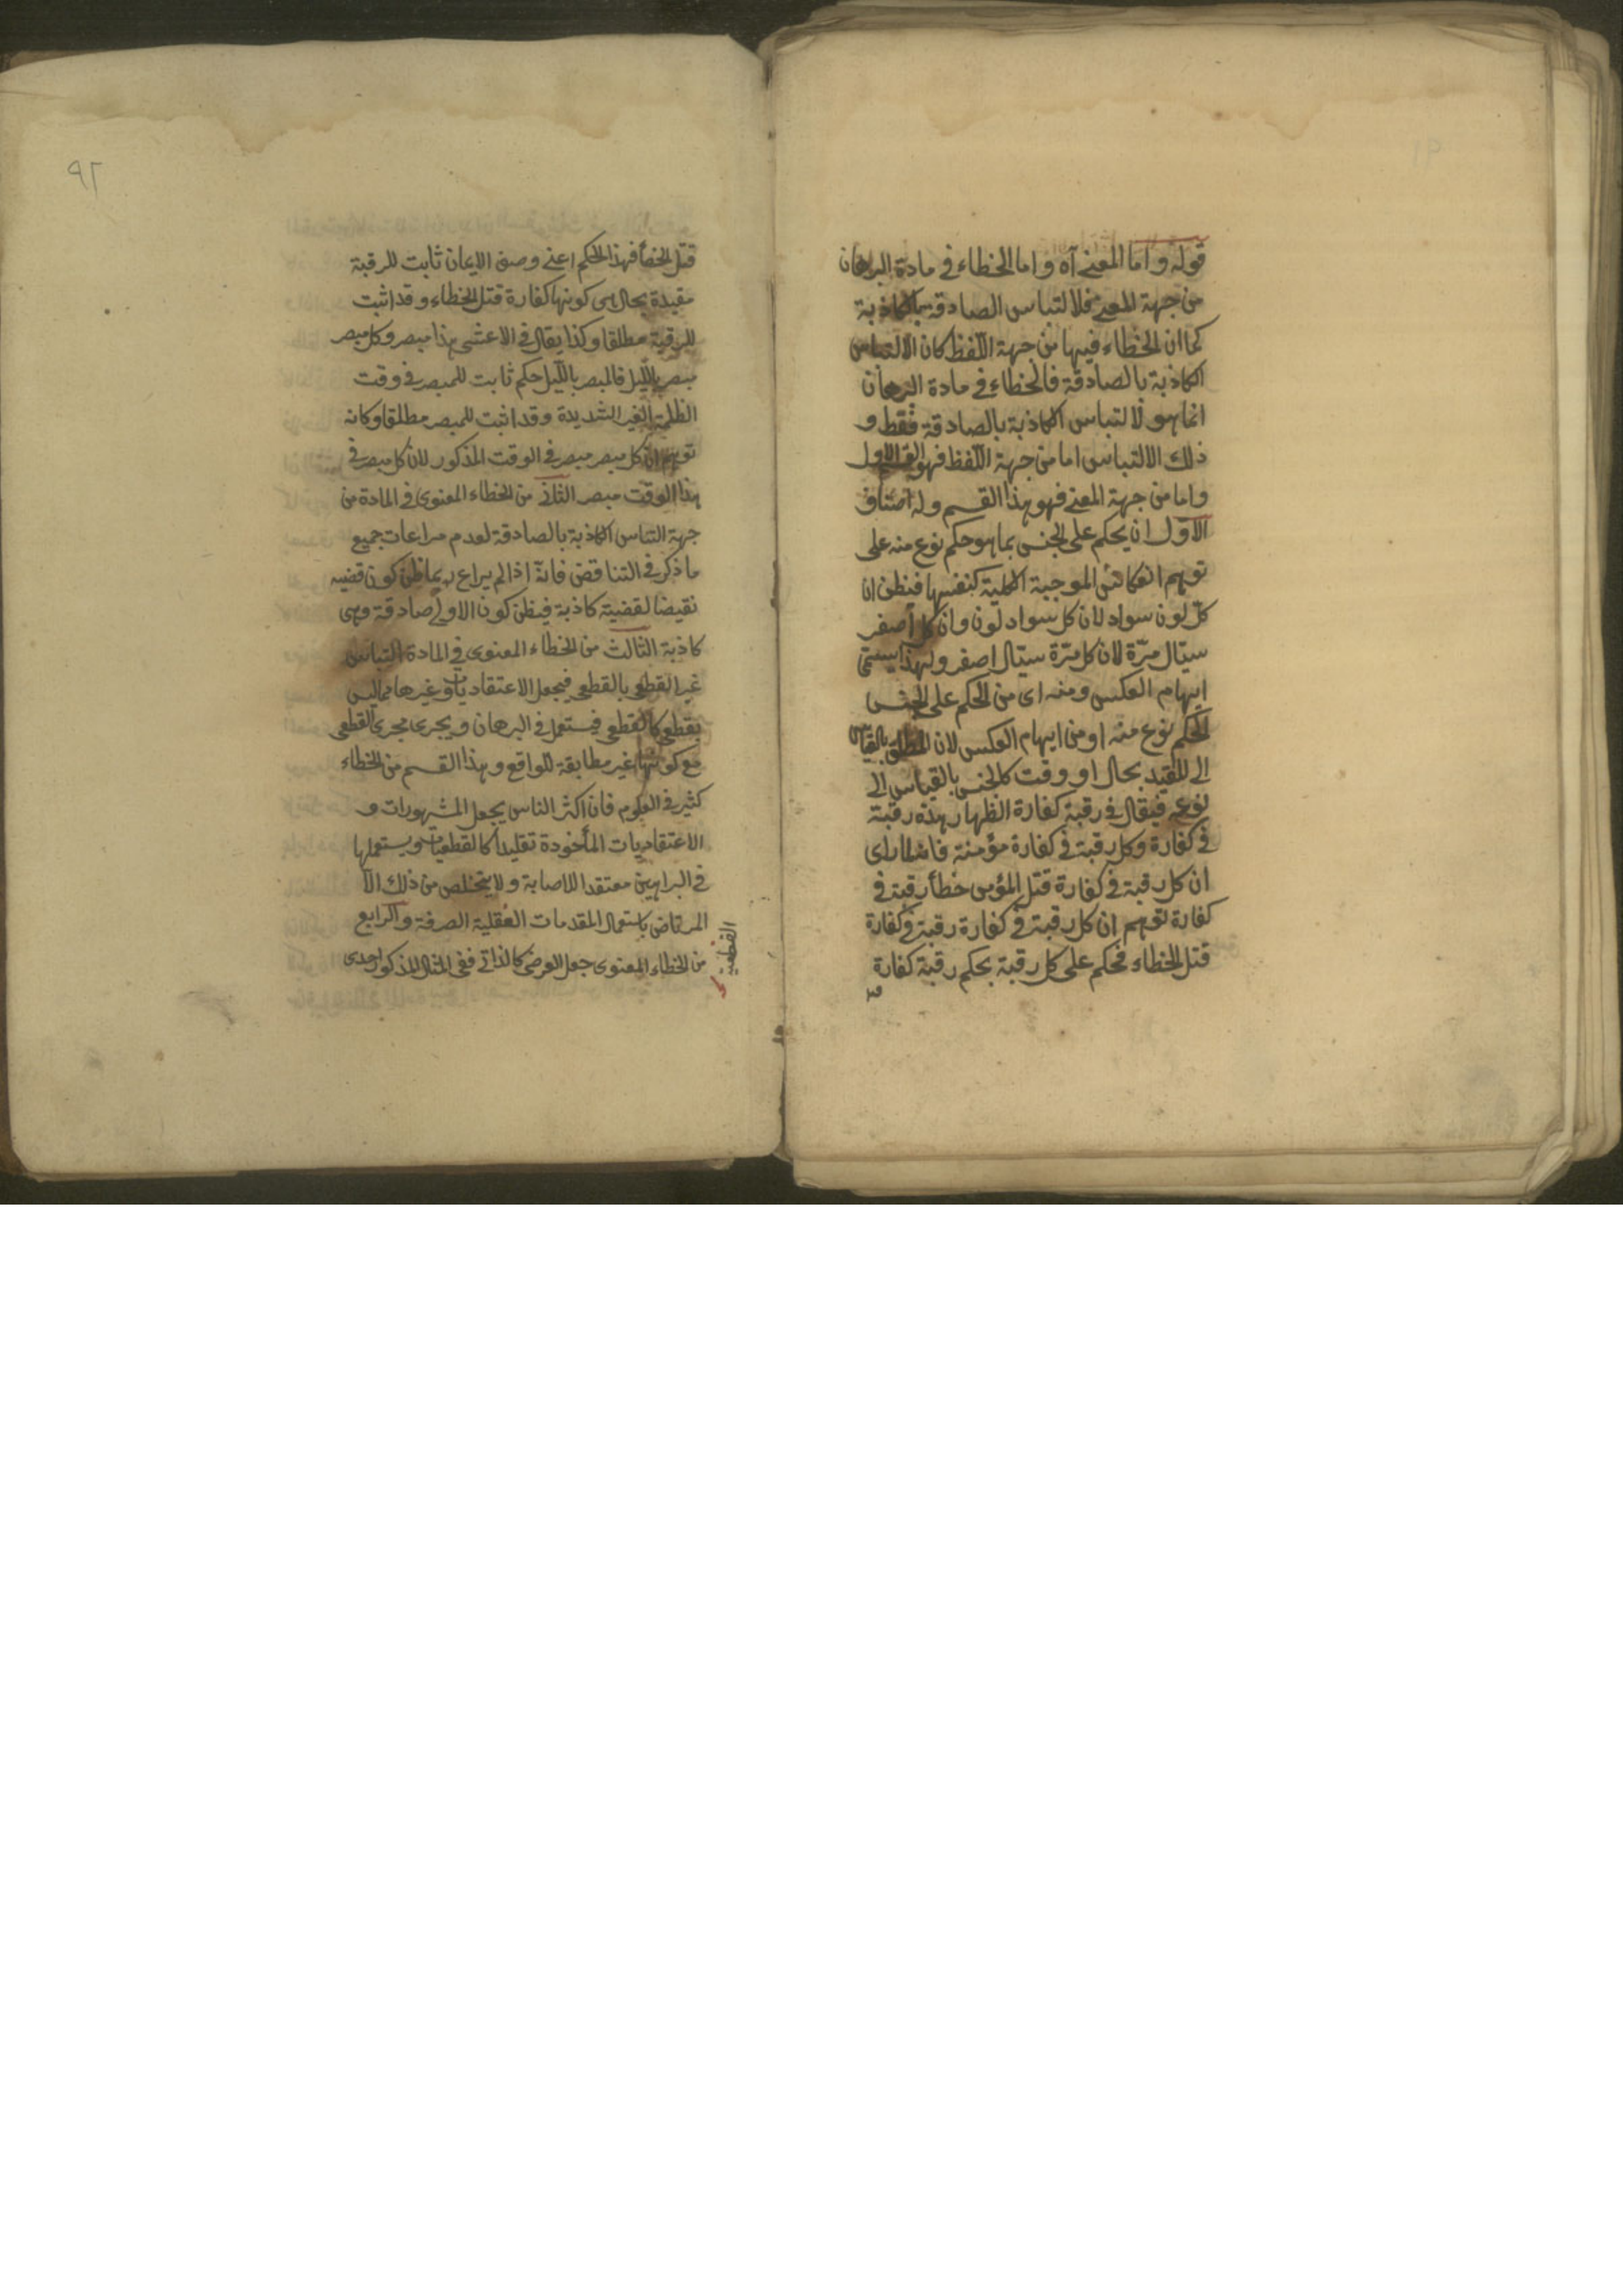 ٩١
قوله واما المعنى آه واما الخطاء فى مادة البرهان
من جهة المعنى فلالتباس الصادقة بالكاذبة
كما ان الخطاء فيها من جهة اللفظ كان لالتباس
الكاذبة بالصادقة فالخطاء فى مادة البرهان
انما هو لالتباس الكاذبة بالصادقة فقط و
ذلك الالتباس اما من جهة اللفظ فهو القسم الاول
واما من جهة المعنى فهو هذا القسم وله اصناف
الاول ان يحكم على الجنس بما هو حكم نوع منه على
توهم انعكاس الموجبة الكلية كنفسها فيظن ان
كل لون سواد لان كل سواد لون وان كل اصفر
سيّال مرّة لان كل مرّة سيّال اصفر ولهذا يسمّى
ايهام العكس ومنه اى من الحكم على الجنس
الحكم نوع منه او من ايهام العكس لان المطلق بالقياس
الى المقيد بحال او وقت كالجنس بالقياس الى
نوعه فيقال فى رقبة كفارة الظهار هذه رقبة
فى كفارة وكل رقبة فى كفارة مؤمنة راى
ان كل رقبة فى كفارة قتل المؤمن خطأ رقبة فى
كفارة توهم ان كل رقبة فى كفارة رقبة فى كفارة
قتل الخطاء فحكم على كل رقبة بحكم رقبة كفارة
٩٢
قتل الخطأ فهذا الحكم اعنى وصف الايمان ثابت للرقبة
مقيدة بحال هى كونها كفارة قتل الخطاء وقد اثبت
للرقبة مطلقا وكذا يقال فى الاعشى هذا مبصر وكل مبصر
مبصر بالليل فالمبصر بالليل حكم ثابت للمبصر فى وقت
الظلمة الغير الشديدة وقد اثبت للمبصر مطلقا وكانه
توهم ان كل مبصر مبصر فى الوقت المذكور لان كل مبصر فى
هذا الوقت مبصر الثانى من الخطاء المعنوى فى المادة من
جهة التباس الكاذبة بالصادقة لعدم مراعات جميع
ما ذكر فى التناقض فانه اذا لم يراع ربما ظن كون قضيه
نقيضا لقضية كاذبة فيظن كون الاولى صادقة وهى
كاذبة الثالث من الخطاء المعنوى فى المادة التباس
غير القطعى بالقطعى فيجعل الاعتقاديات وغيرها مما ليس
بقطعى كالقطعى فيستعمل فى البرهان ويجرى مجرى القطعى
مع كونها غير مطابقة للواقع وهذا القسم من الخطاء
كثير فى العلوم فان اكثر الناس يجعل المشهورات و
الاعتقاديات المأخوذة تقليدا كالقطعيات ويستعملها
فى البراهين معتقدا للاصابة ولا يتخلص من ذلك الا
المرتاض باستعمال المقدمات العقلية الصرفة والرابع
من الخطاء المعنوى جعل العرضى كالذاتى ففى المثال المذكور احدى
القطعية